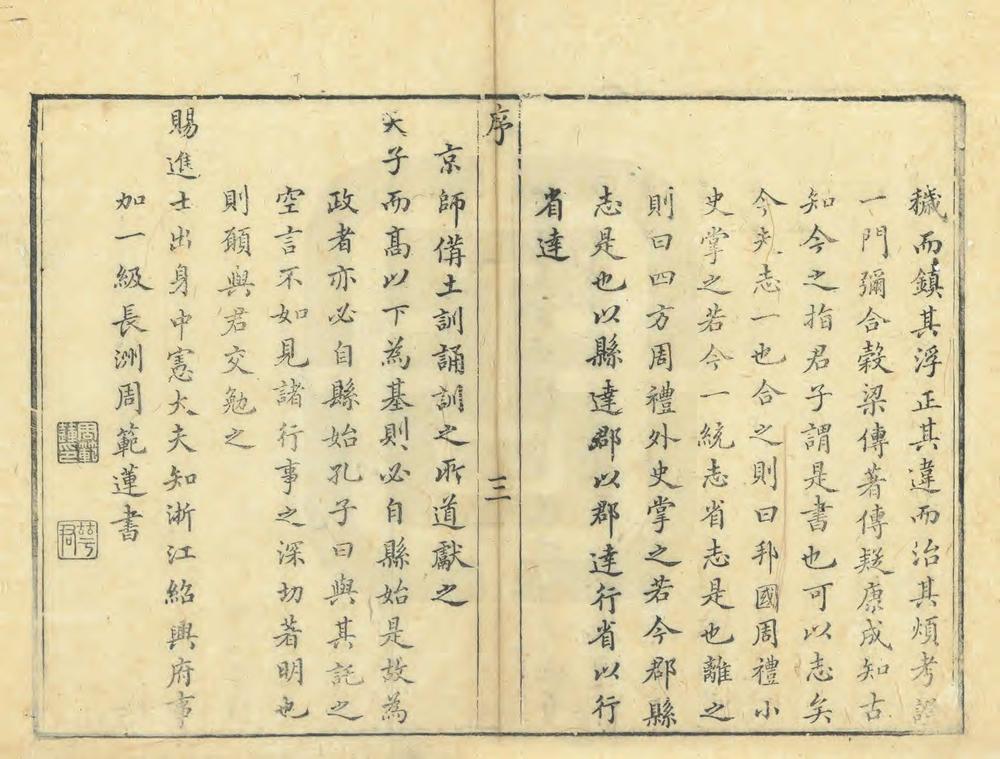 穢而鎮其浮正其違而治其煩考證
一門彌合穀梁傳著傳疑康成知古
知今之指君子謂是書也可以志矣
今夫志一也合之則曰邦國周禮小
史掌之若今一統志省志是也離之
則曰四方周禮外史掌之若今郡縣
志是也以縣達郡以郡達行省以行
省達
序
三
京師備土訓誦訓之所道獻之
天子而高以下為基則必自縣始是故為
政者亦必自縣始孔子曰與其託之
空言不如見諸行事之深切著明也
則願與君交勉之
賜進士出身中憲大夫知浙江紹興府事
加一級長洲周範蓮書
周範蓮印